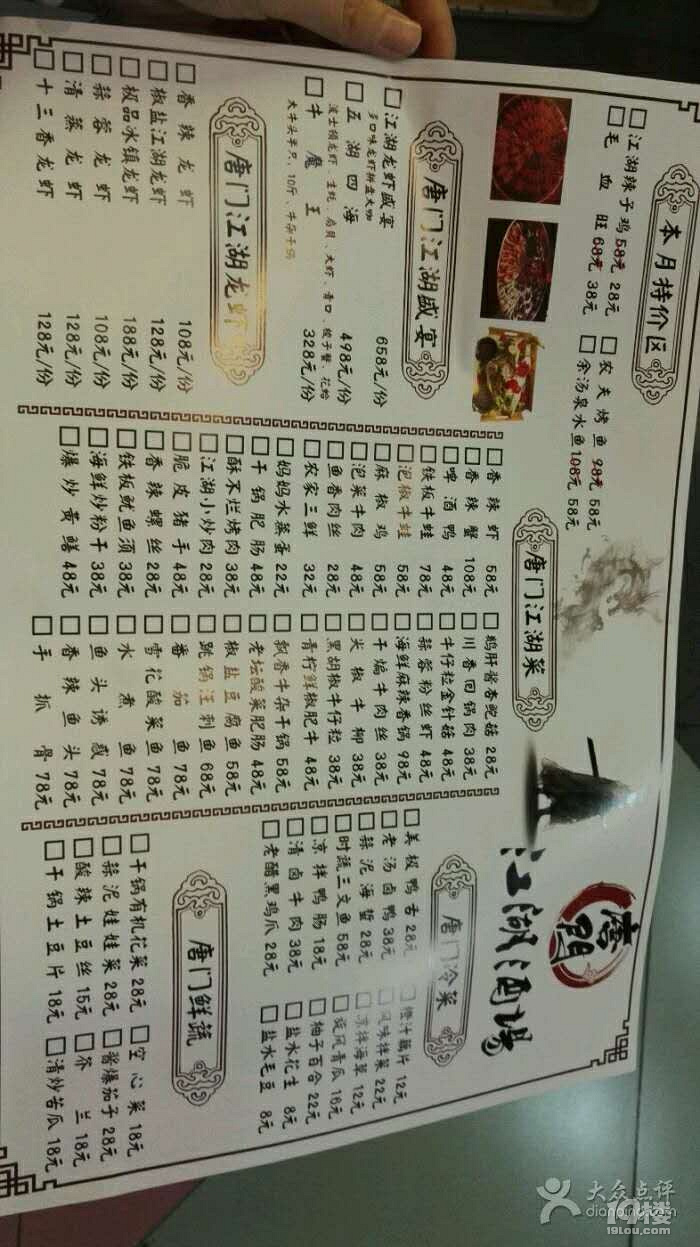 唐門
江湖酒场
本月特价区
江湖辣子鸡 58元 28元
毛血旺 68元 38元
农夫烤鱼 98元 58元
余汤泉水鱼 108元 58元
唐门江湖盛宴
江湖龙虾盛宴 658元/份
多口味龙虾拼盘大咖
五湖四海 498元/份
波士顿龙虾、生蚝、扇贝、大虾、青口、梭子蟹、花蛤
牛魔王 328元/份
大牛头半只、10斤、牛杂干锅
唐门江湖龙虾
香辣龙虾 108元/份
椒盐江湖龙虾 128元/份
极品冰镇龙虾 188元/份
蒜蓉龙虾 108元/份
清蒸龙虾 128元/份
十三香龙虾 128元/份
唐门江湖菜
香辣虾 58元
香辣蟹 108元
啤酒鸭 48元
铁板牛蛙 78元
泡椒牛蛙 58元
麻椒鸡 58元
泡菜牛肉 48元
鱼香肉丝 28元
农家三鲜 32元
妈妈水蒸蛋 22元
干锅肥肠 48元
酥不烂烤肉 38元
江湖小炒肉 28元
脆皮猪手 48元
香辣螺丝 28元
铁板鱿鱼须 38元
海鲜炒粉干 38元
爆炒黄鳝 48元
鹅肝酱杏鲍菇 28元
川香回锅肉 38元
牛仔粒金针菇 48元
蒜蓉粉丝虾 48元
海鲜麻辣香锅 98元
干煸牛肉丝 38元
火椒牛柳 38元
黑胡椒牛仔粒 38元
青柠鲜椒肥牛 48元
飘香牛杂干锅 58元
老坛酸菜肥肠 48元
椒盐豆腐鱼 58元
跳锅汪刺鱼 68元
番茄鱼 78元
雪花酸菜鱼 78元
水煮鱼 78元
鱼头诱惑 78元
香辣鱼头 78元
手抓骨 78元
唐门冷菜
美极鸭舌 28元
老汤卤鸭 38元
蒜泥海蜇 28元
时蔬三文鱼 58元
凉拌鸭肠 18元
清卤牛肉 38元
老醋黑鸡爪 28元
橙汁藕片 12元
风味拌菜 22元
凉拌海草 12元
旋风青瓜 16元
柚子百合 22元
盐水花生 8元
盐水毛豆 8元
唐门鲜蔬
干锅有机花菜 28元
蒜泥娃娃菜 28元
酸辣土豆丝 15元
干锅土豆片 18元
空心菜 18元
酱爆茄子 28元
芥兰 18元
清炒苦瓜 18元
大众点评
dianping.com
19楼
19lou.com